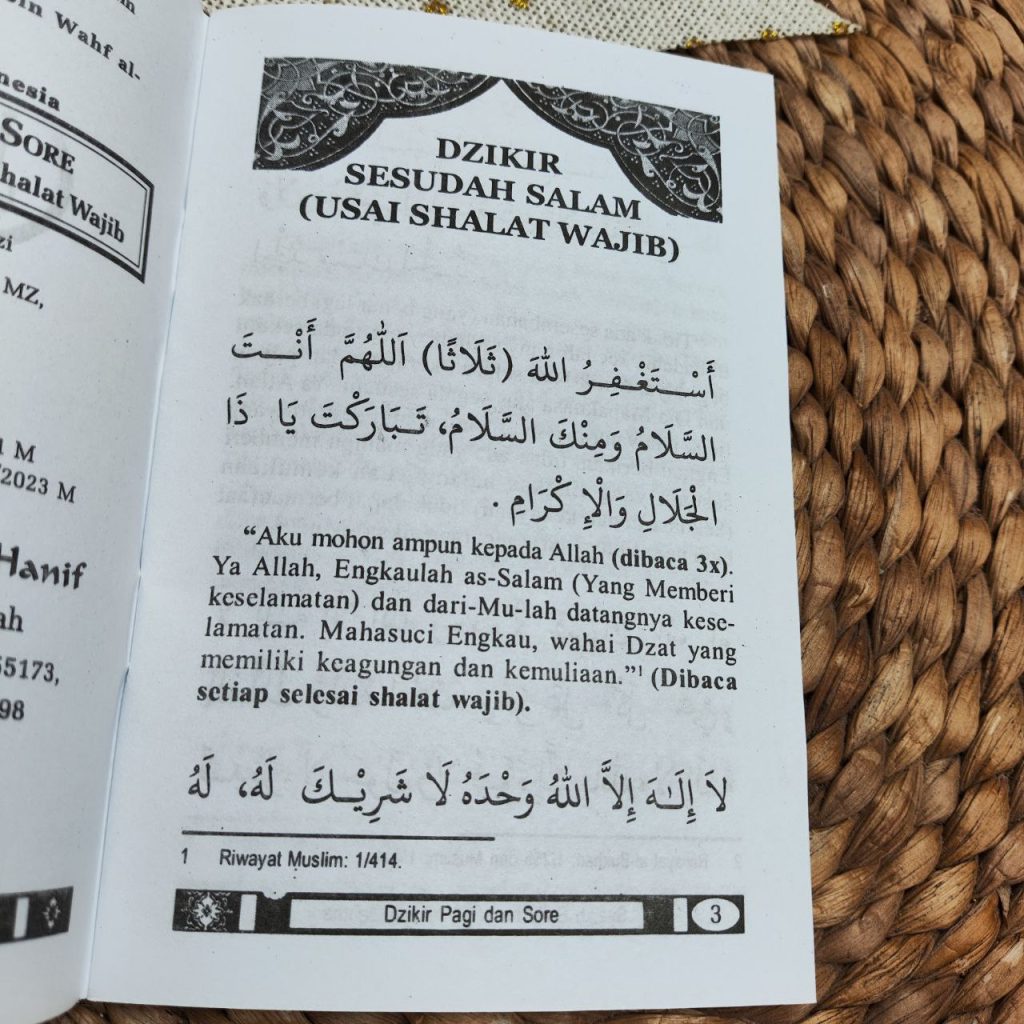 in Wahf al-
nesia
SORE
halat Wajib
zi
MZ,
1 M
/2023 M
Hanif
ah
55173,
98
DZIKIR
SESUDAH SALAM
(USAI SHALAT WAJIB)
أَسْتَغْفِرُ اللهَ (ثَلَاثًا) اَللّٰهُمَّ أَنْتَ
السَّلَامُ وَمِنْكَ السَّلَامُ، تَبَارَكْتَ يَا ذَا
الْجَلَالِ وَالْإِكْرَامِ.
“Aku mohon ampun kepada Allah (dibaca 3x).
Ya Allah, Engkaulah as-Salam (Yang Memberi
keselamatan) dan dari-Mu-lah datangnya kese-
lamatan. Mahasuci Engkau, wahai Dzat yang
memiliki keagungan dan kemuliaan.”1 (Dibaca
setiap selesai shalat wajib).
لاَ إِلَـٰهَ إِلاَّ اللهُ وَحْدَهُ لَا شَرِيْكَ لَهُ، لَهُ
1 Riwayat Muslim: 1/414.
Dzikir Pagi dan Sore 3